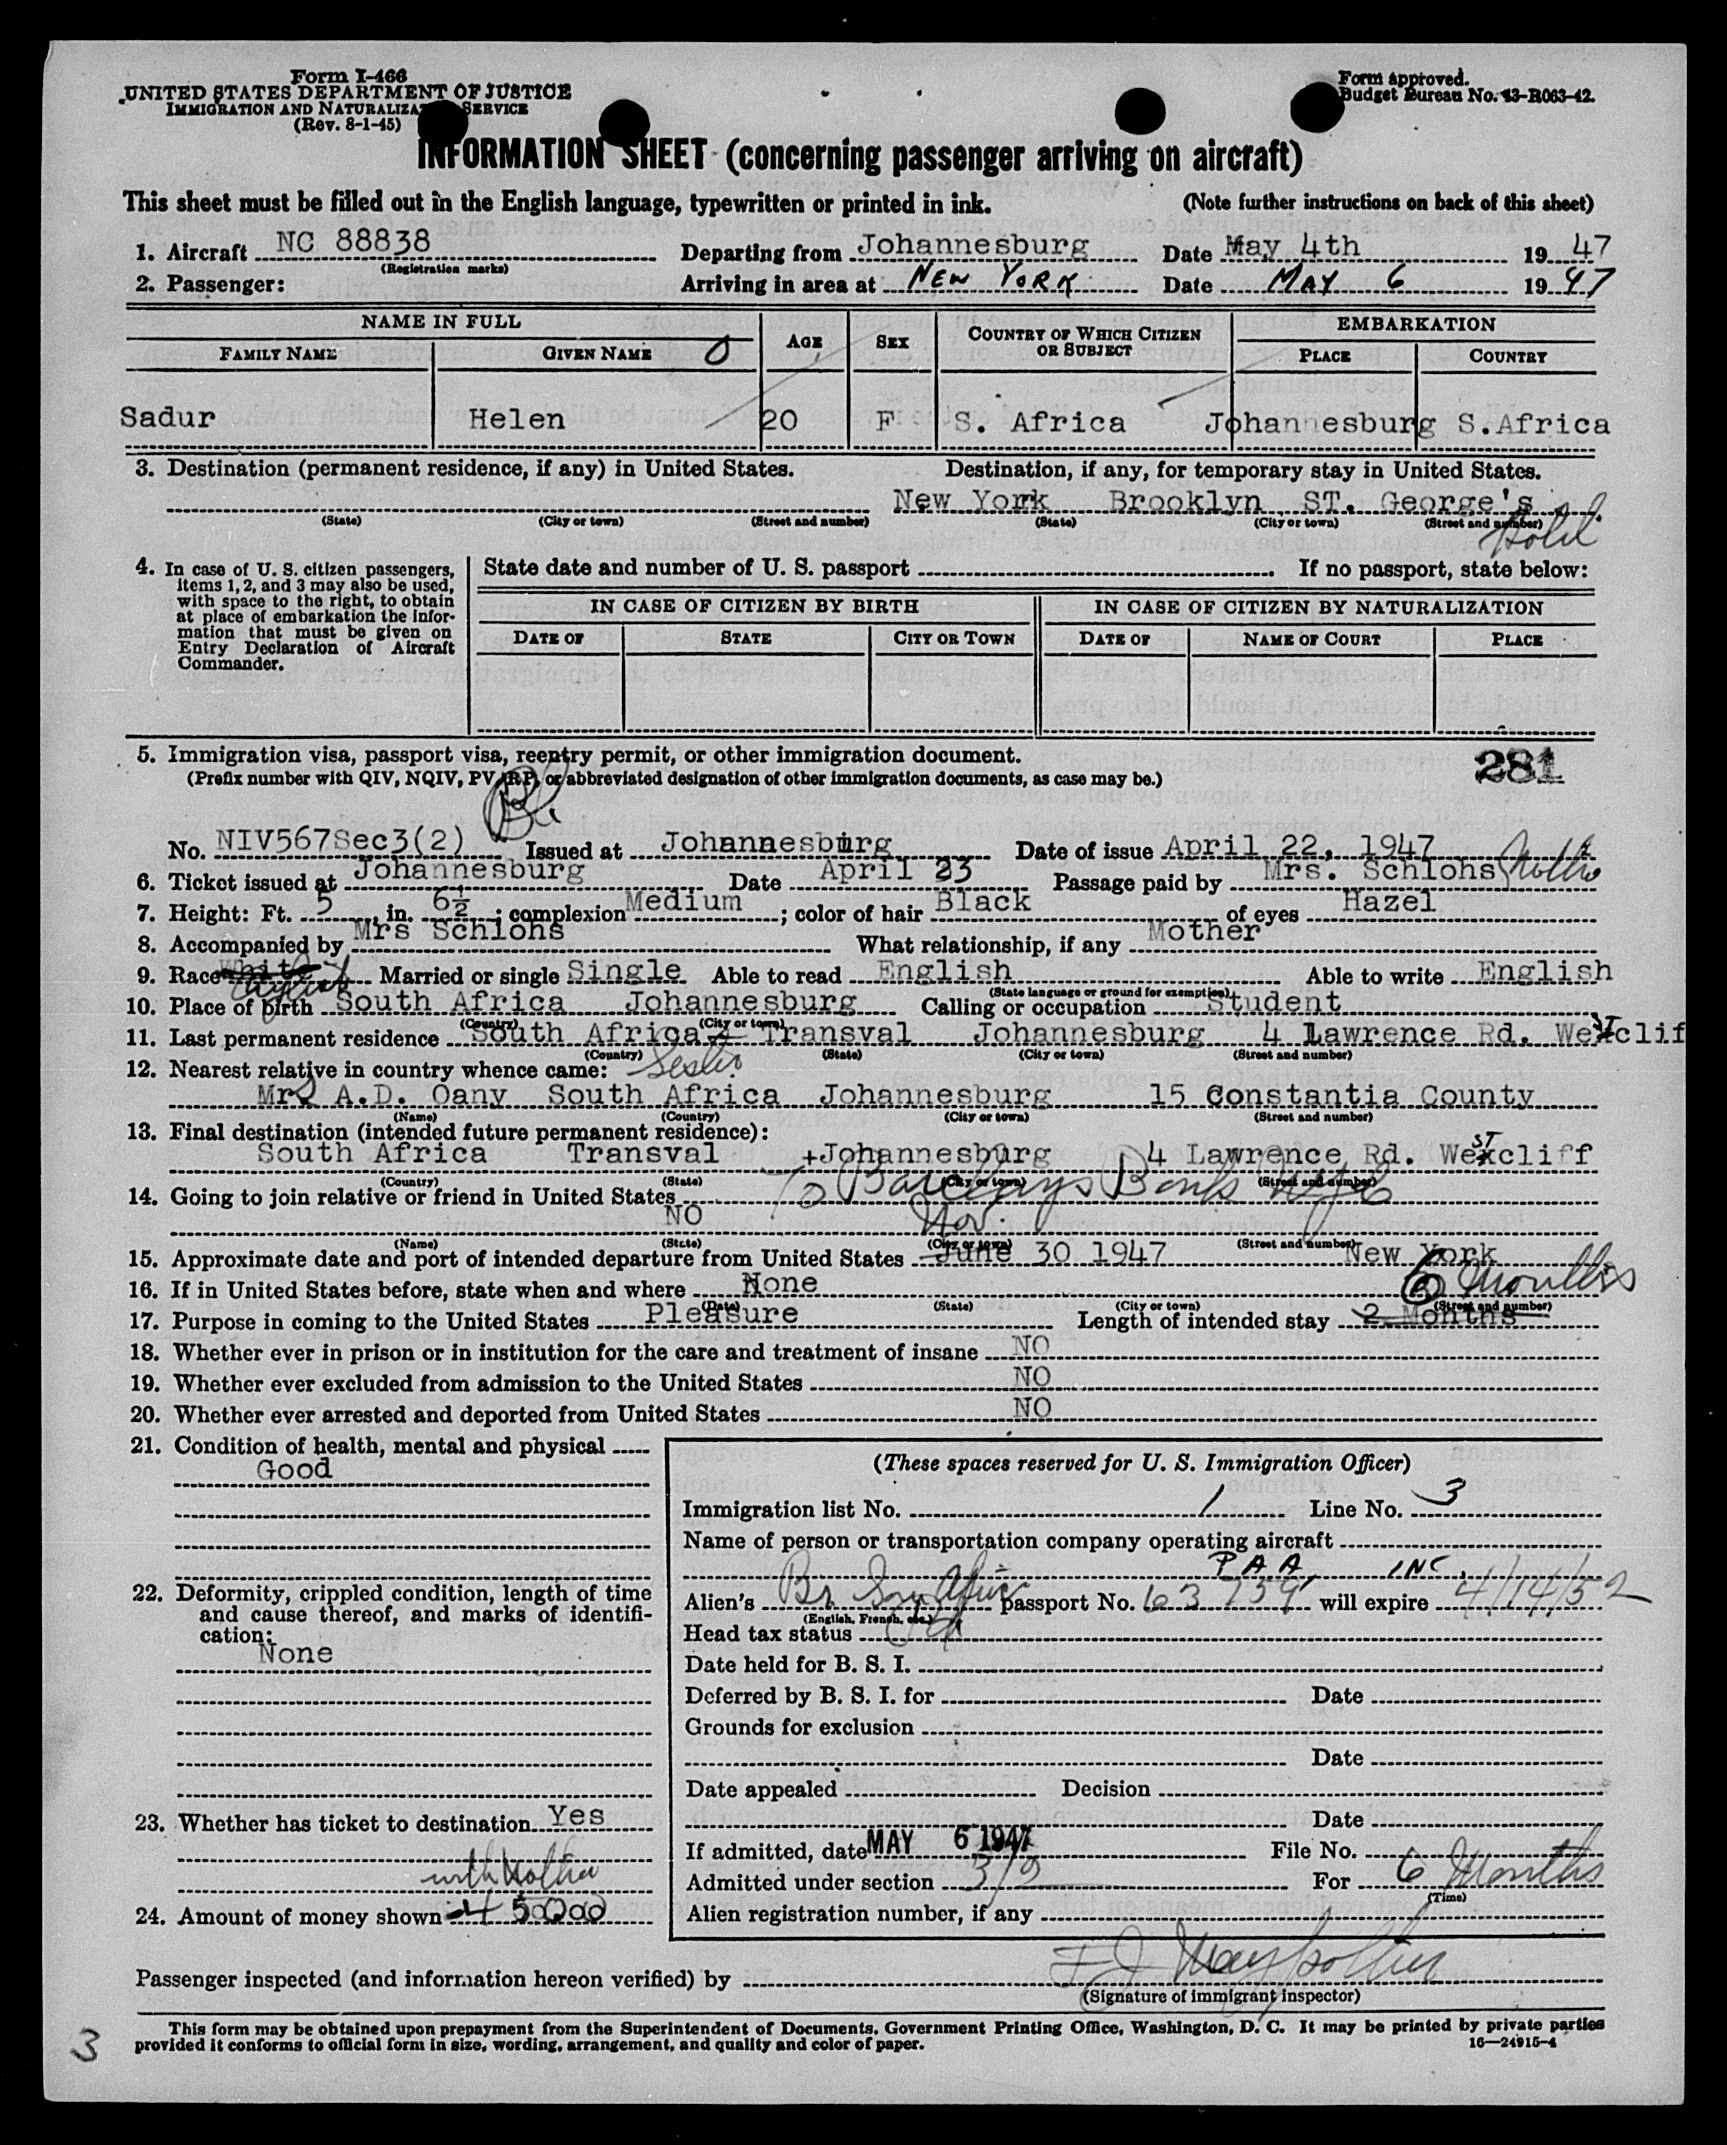 Form I-466
UNITED STATES DEPARTMENT OF JUSTICE
IMMIGRATION AND NATURALIZATION SERVICE
(Rev. 8-1-45)
Form approved.
Budget Bureau No. 43-R063-42.
INFORMATION SHEET (concerning passenger arriving on aircraft)
This sheet must be filled out in the English language, typewritten or printed in ink. (Note further instructions on back of this sheet)
1. Aircraft NC 88838 Departing from Johannesburg Date May 4th 19 47
(Registration marks)
2. Passenger: Arriving in area at NEW YORK Date MAY 6 19 47
NAME IN FULL AGE SEX COUNTRY OF WHICH CITIZEN OR SUBJECT EMBARKATION
FAMILY NAME GIVEN NAME PLACE COUNTRY
Sadur Helen 20 F S. Africa Johannesburg S.Africa
3. Destination (permanent residence, if any) in United States. Destination, if any, for temporary stay in United States.
New York Brooklyn ST. George's Hotel
(State) (City or town) (Street and number) (State) (City or town) (Street and number)
4. In case of U. S. citizen passengers, items 1, 2, and 3 may also be used, with space to the right, to obtain at place of embarkation the information that must be given on Entry Declaration of Aircraft Commander.
State date and number of U. S. passport . If no passport, state below:
IN CASE OF CITIZEN BY BIRTH IN CASE OF CITIZEN BY NATURALIZATION
DATE OF STATE CITY OR TOWN DATE OF NAME OF COURT PLACE
5. Immigration visa, passport visa, reentry permit, or other immigration document. 281
(Prefix number with QIV, NQIV, PV, RP, or abbreviated designation of other immigration documents, as case may be.)
No. NIV567Sec3(2) Issued at Johannesburg Date of issue April 22, 1947
6. Ticket issued at Johannesburg Date April 23 Passage paid by Mrs. Schlohs Mother
7. Height: Ft. 5, in. 6½; complexion Medium; color of hair Black of eyes Hazel
8. Accompanied by Mrs Schlohs What relationship, if any Mother
9. Race White Married or single Single Able to read English Able to write English
(State language or ground for exemption)
10. Place of birth South Africa Johannesburg Calling or occupation Student
(Country) (City or town)
11. Last permanent residence South Africa Transval Johannesburg 4 Lawrence Rd. Westclif
(Country) (State) (City or town) (Street and number)
12. Nearest relative in country whence came: Sister
Mrs A.D. Oany South Africa Johannesburg 15 Constantia County
(Name) (Country) (City or town) (Street and number)
13. Final destination (intended future permanent residence):
South Africa Transval Johannesburg 4 Lawrence Rd. Westcliff
(Country) (State) (City or town) (Street and number)
14. Going to join relative or friend in United States To Barclays Bank
NO
(Name) (State) (City or town) (Street and number)
15. Approximate date and port of intended departure from United States June Nov. 30 1947 New York
16. If in United States before, state when and where None
(Date) (State) (City or town) (Street and number)
17. Purpose in coming to the United States Pleasure Length of intended stay 2 Months 6 Months
18. Whether ever in prison or in institution for the care and treatment of insane NO
19. Whether ever excluded from admission to the United States NO
20. Whether ever arrested and deported from United States NO
21. Condition of health, mental and physical
Good
22. Deformity, crippled condition, length of time and cause thereof, and marks of identification:
None
23. Whether has ticket to destination Yes
with Mother
24. Amount of money shown
(These spaces reserved for U. S. Immigration Officer)
Immigration list No. 1 Line No. 3
Name of person or transportation company operating aircraft
P A A INC.
Alien's Br So Africa passport No. 63759 will expire 4/14/52
(English, French, etc.)
Head tax status
Date held for B. S. I.
Deferred by B. S. I. for Date
Grounds for exclusion
Date
Date appealed Decision
Date
If admitted, date MAY 6 1947 File No.
Admitted under section 3/2 For 6 Months
(Time)
Alien registration number, if any
Passenger inspected (and information hereon verified) by
(Signature of immigrant inspector)
This form may be obtained upon prepayment from the Superintendent of Documents, Government Printing Office, Washington, D. C. It may be printed by private parties
provided it conforms to official form in size, wording, arrangement, and quality and color of paper. 16—24915-4
3